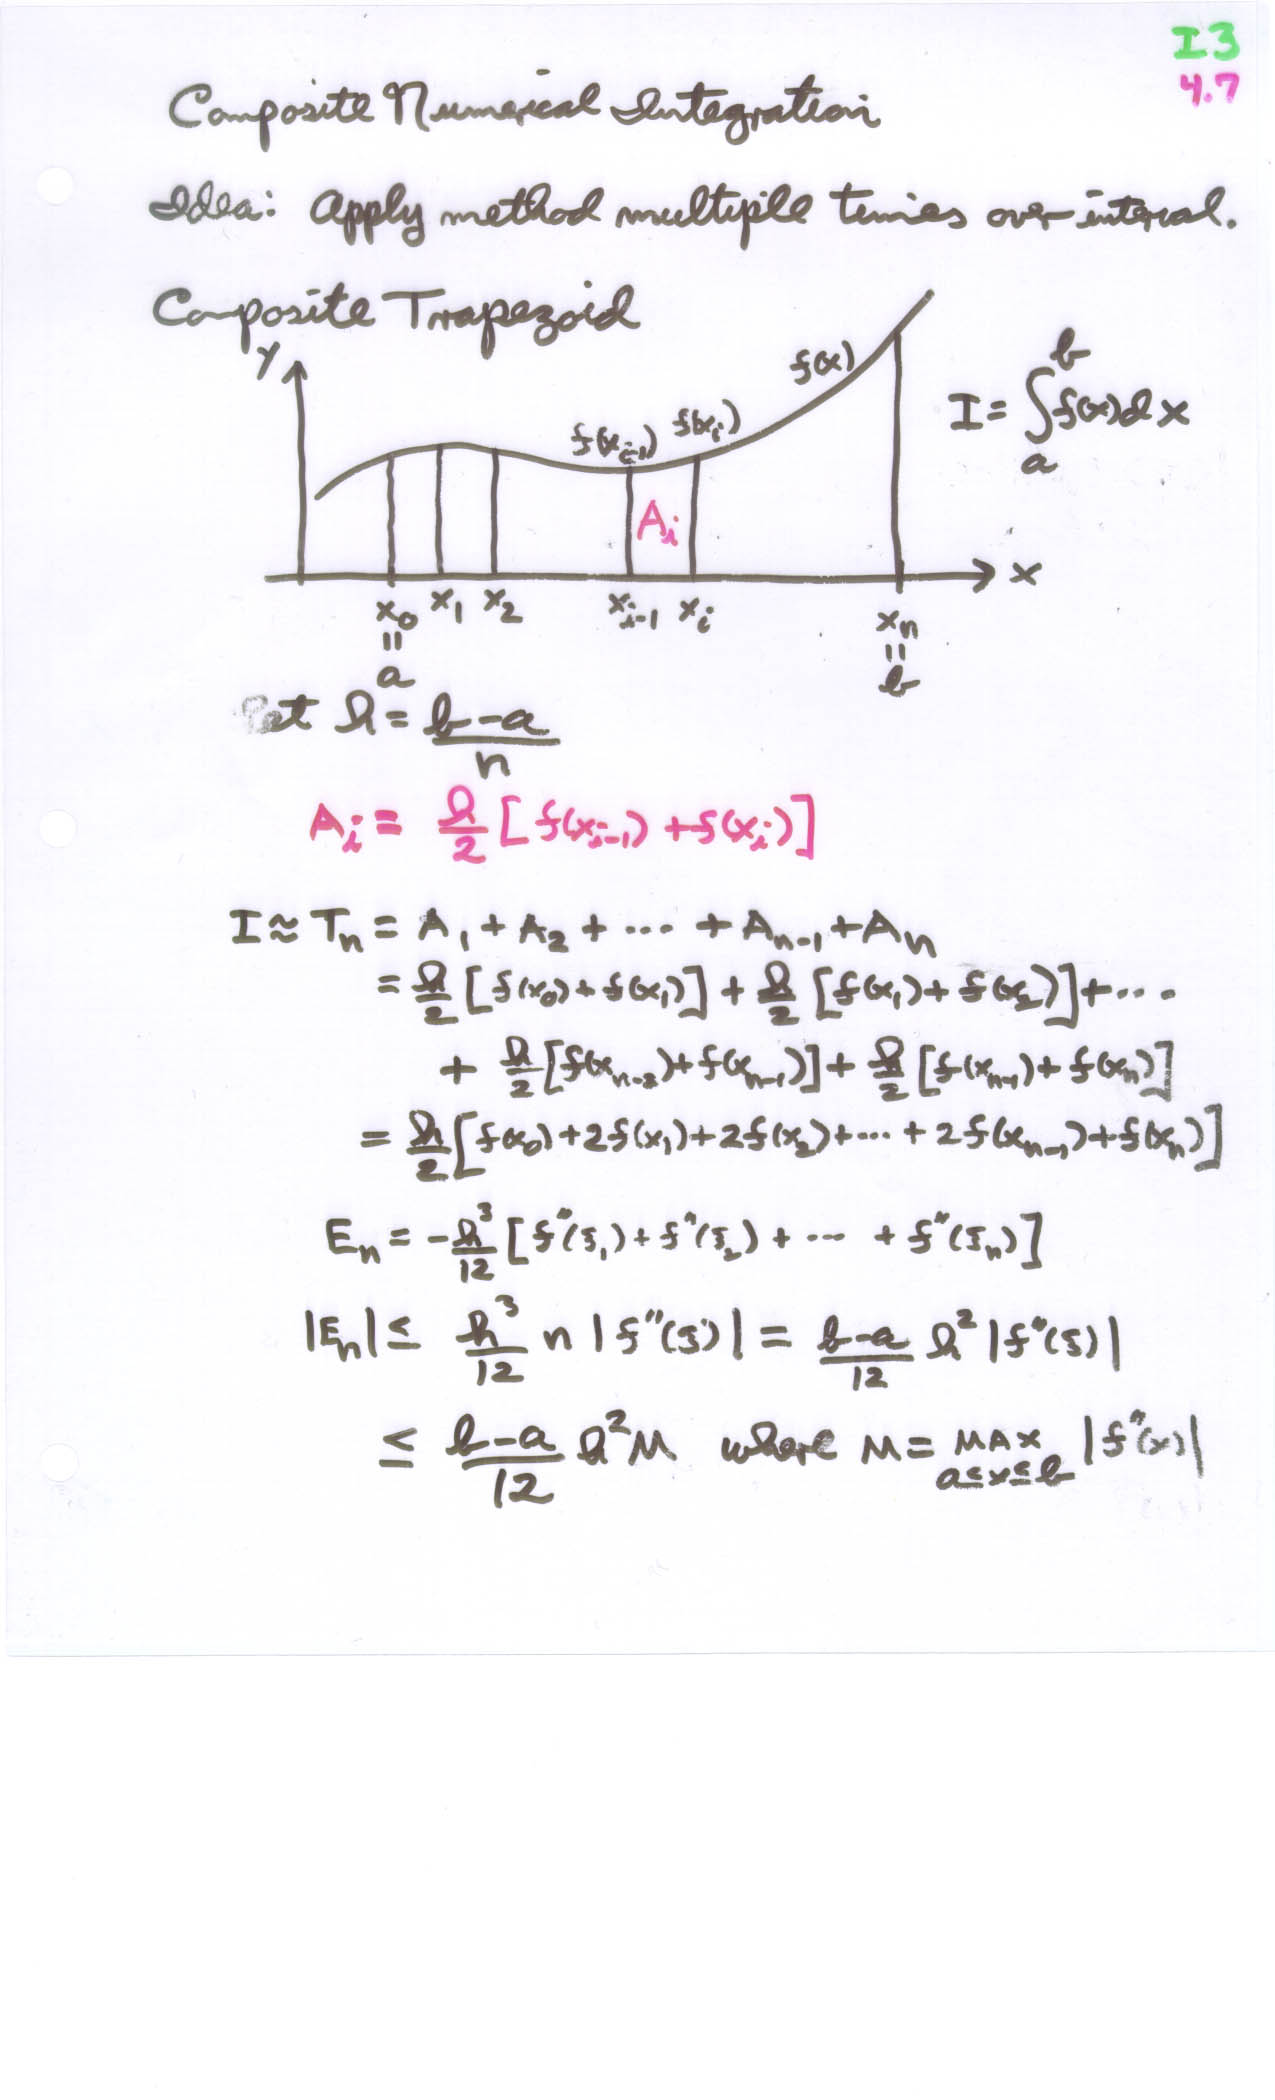 I3
4.7
Composite Numerical Integration
Idea: Apply method multiple times over interval.
Composite Trapezoid
y
f(x)
f(x_{i-1}) f(x_i)
I = ∫_a^b f(x)dx
A_i
x
x_0 x_1 x_2 x_{i-1} x_i x_n
= =
a b
Let h = (b-a)/n
A_i = h/2 [f(x_{i-1}) + f(x_i)]
I ≈ T_n = A_1 + A_2 + ... + A_{n-1} + A_n
= h/2 [f(x_0) + f(x_1)] + h/2 [f(x_1) + f(x_2)] + ...
+ h/2 [f(x_{n-2}) + f(x_{n-1})] + h/2 [f(x_{n-1}) + f(x_n)]
= h/2 [f(x_0) + 2f(x_1) + 2f(x_2) + ... + 2f(x_{n-1}) + f(x_n)]
E_n = -h^3/12 [f''(ξ_1) + f''(ξ_2) + ... + f''(ξ_n)]
|E_n| ≤ h^3/12 n |f''(ξ)| = (b-a)/12 h^2 |f''(ξ)|
≤ (b-a)/12 h^2 M where M = MAX_{a≤x≤b} |f''(x)|